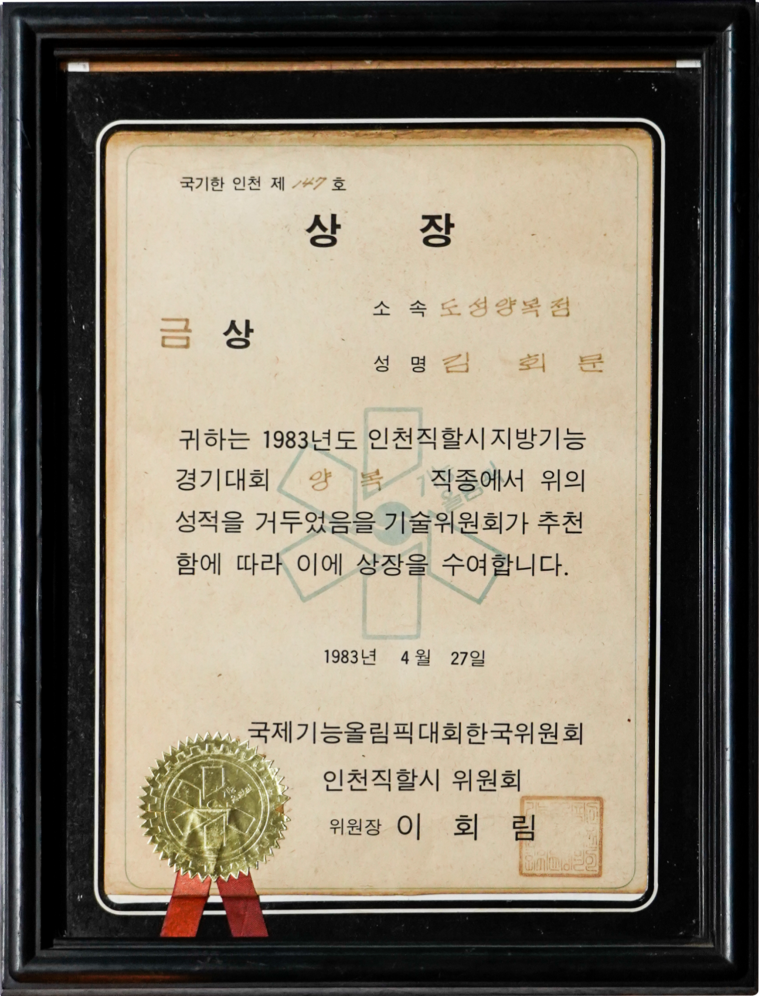 국기한 인천 제 147 호
상 장
소 속 도성양복점
금 상
성 명 김 회 문
귀하는 1983년도 인천직할시지방기능
경기대회 양 복 직종에서 위의
성적을 거두었음을 기술위원회가 추천
함에 따라 이에 상장을 수여합니다.
1983년 4월 27일
국제기능올림픽대회한국위원회
인천직할시 위원회
위원장 이 회 림